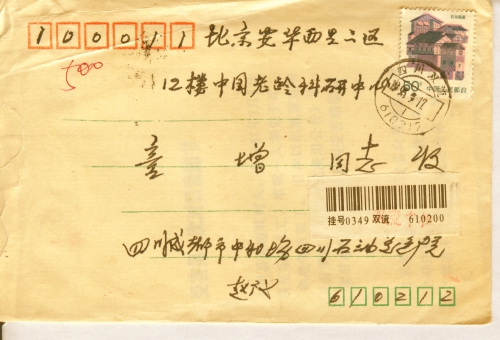 100011
北京安华西里二区
500
12楼中国老龄科研中心
60分 中国人民邮政
四川
610217
童增 同志 收
挂号0349 双流 610200
四川成都市中和场四川石油
610212